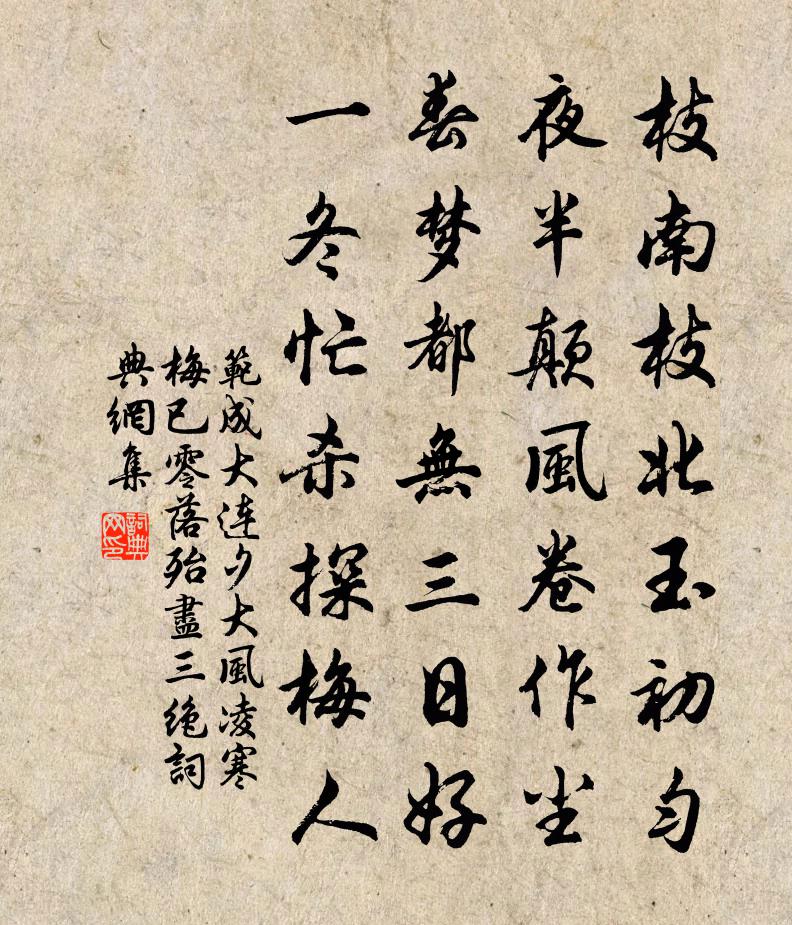 枝南枝北玉初匀
夜半颠風卷作尘
春梦都無三日好
一冬忙杀探梅人
範成大连夕大風凌寒
梅已零落殆盡三绝詞
典網集
詞典网印